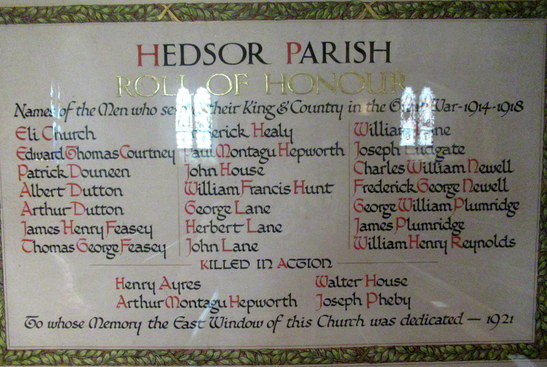 HEDSOR PARISH
ROLL OF HONOUR
Names of the Men who their King & Country in the War-1914-1918
Eli Church Healy William
Edward Thomas Courtney Paul Montagu Hepworth Joseph
Patrick Douneen John House Charles William Newell
Albert Dutton William Francis Hunt Frederick George Newell
Arthur Dutton George Lane George William Plumridge
James Henry Feasey Herbert Lane James Plumridge
Thomas George Feasey John Lane William Henry Reynolds
KILLED IN ACTION
Henry Ayres Walter House
Arthur Montagu Hepworth Joseph Pheby
To whose Memory the East Window of this Church was dedicated — 1921